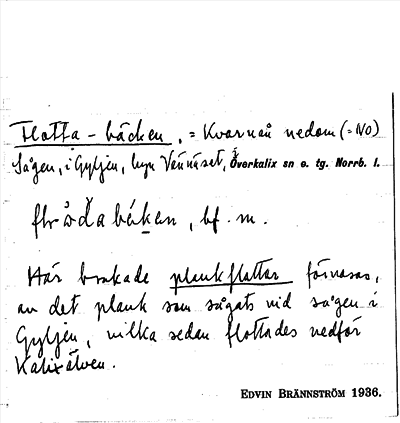 Flotta-bäcken, = Kvarnån nedom (= NO)
Sågen, i Gyljen, byn Vännäset, Överkalix sn o. tg. Norrb. l.
bäkan, bf. m.
Här brukade plankflottar förvaras,
av det plank som sågats vid sågen i
Gyljen, vilka sedan flottades nedför
Kalixälven.
EDVIN BRÄNNSTRÖM 1936.